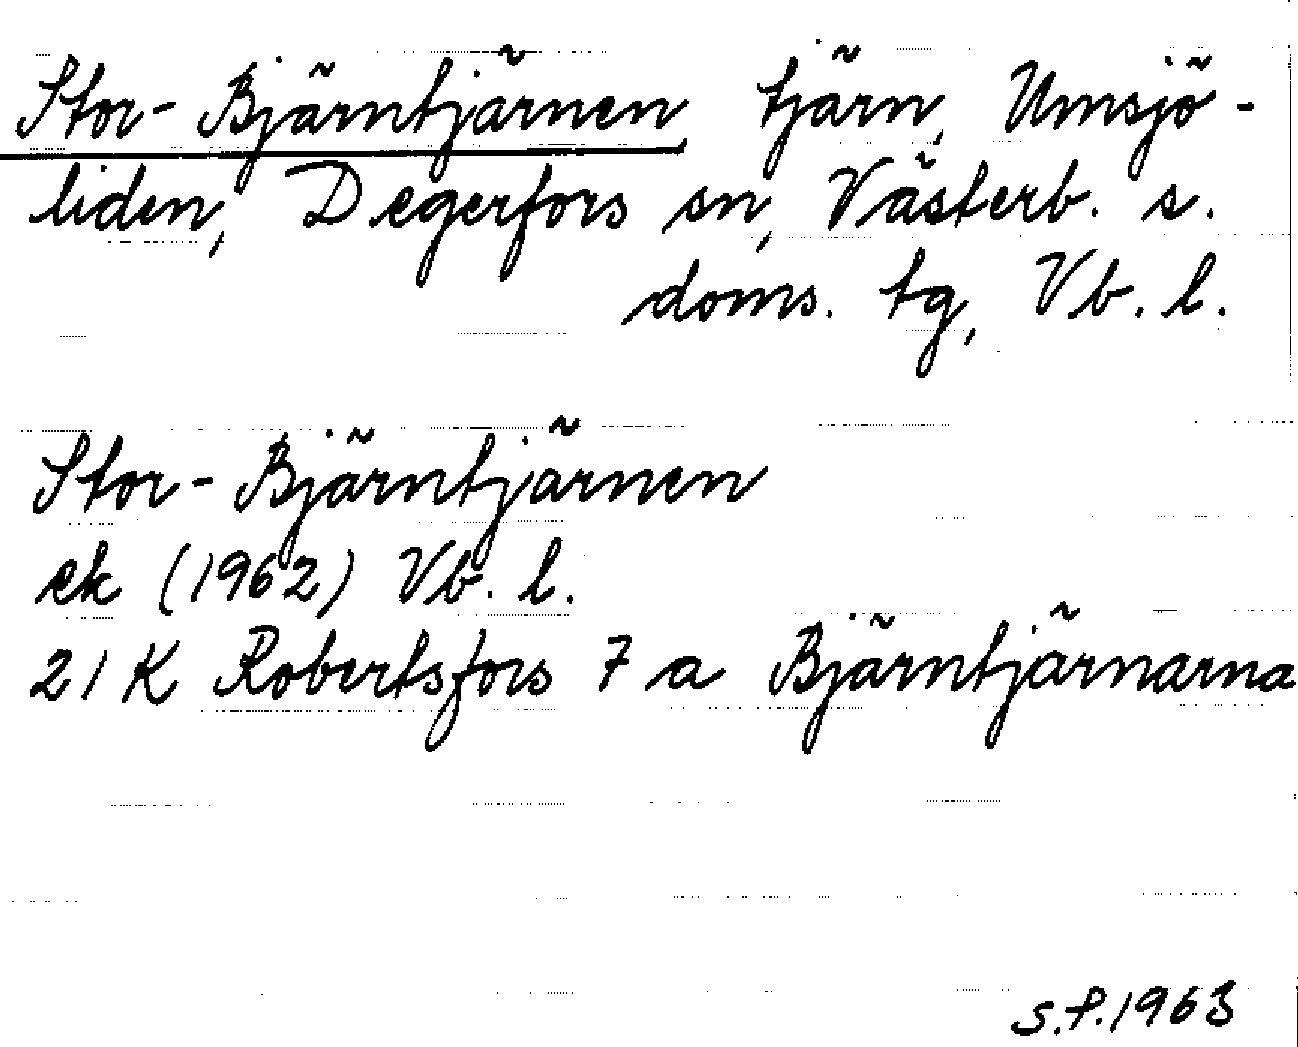 Stor-Bjärntjärnen, tjärn, Umsjö-
liden, Degerfors sn, Västerb. s.
doms. tg, Vb. l.
Stor-Bjärntjärnen
ek (1962) Vb. l.
21 K Robertsfors 7 a Bjärntjärnarna
S.F. 1963